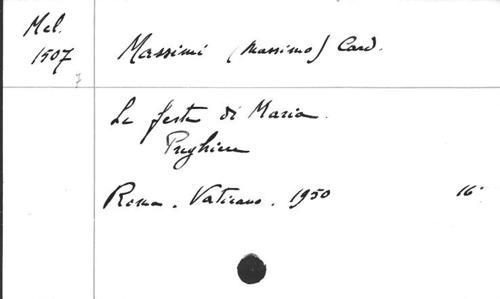 Mel.
1507
7
Massimi (Massimo) Card.
Le feste di Maria.
Preghiere
Roma. Vaticano. 1950 16°